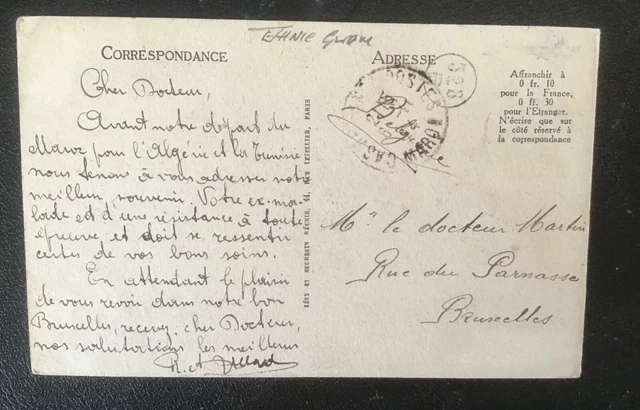 ETHNIC
CORRESPONDANCE
ADRESSE
Affranchir à
0 fr. 10
pour la France,
0 fr. 30
pour l'Etranger.
N'écrire que sur
le côté réservé à
la correspondance
POSTES
MAROC
Cher Docteur,
Avant notre départ du
Maroc pour l'Algérie et la Tunisie
nous tenons à vous adresser notre
meilleur souvenir. Votre ex-ma-
lade est d'une résistance à toute
épreuve et doit se ressentir
certes de vos bons soins.
En attendant le plaisir
de vous revoir dans notre bon
Bruxelles, recevez, cher Docteur,
nos salutations les meilleures
R. et
LÉVY ET NEURDEIN RÉUNIS, 44, RUE LETELLIER, PARIS
Mr le docteur Martin
Rue du Parnasse
Bruxelles